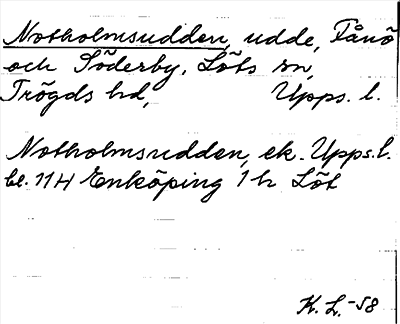 Notholmsudden, udde, Fånö
och Söderby, Löts sn,
Trögds hd, Upps. l.
Notholmsudden, ek. Upps. l.
bl. 11H Enköping 1h Löt
K. L. -58